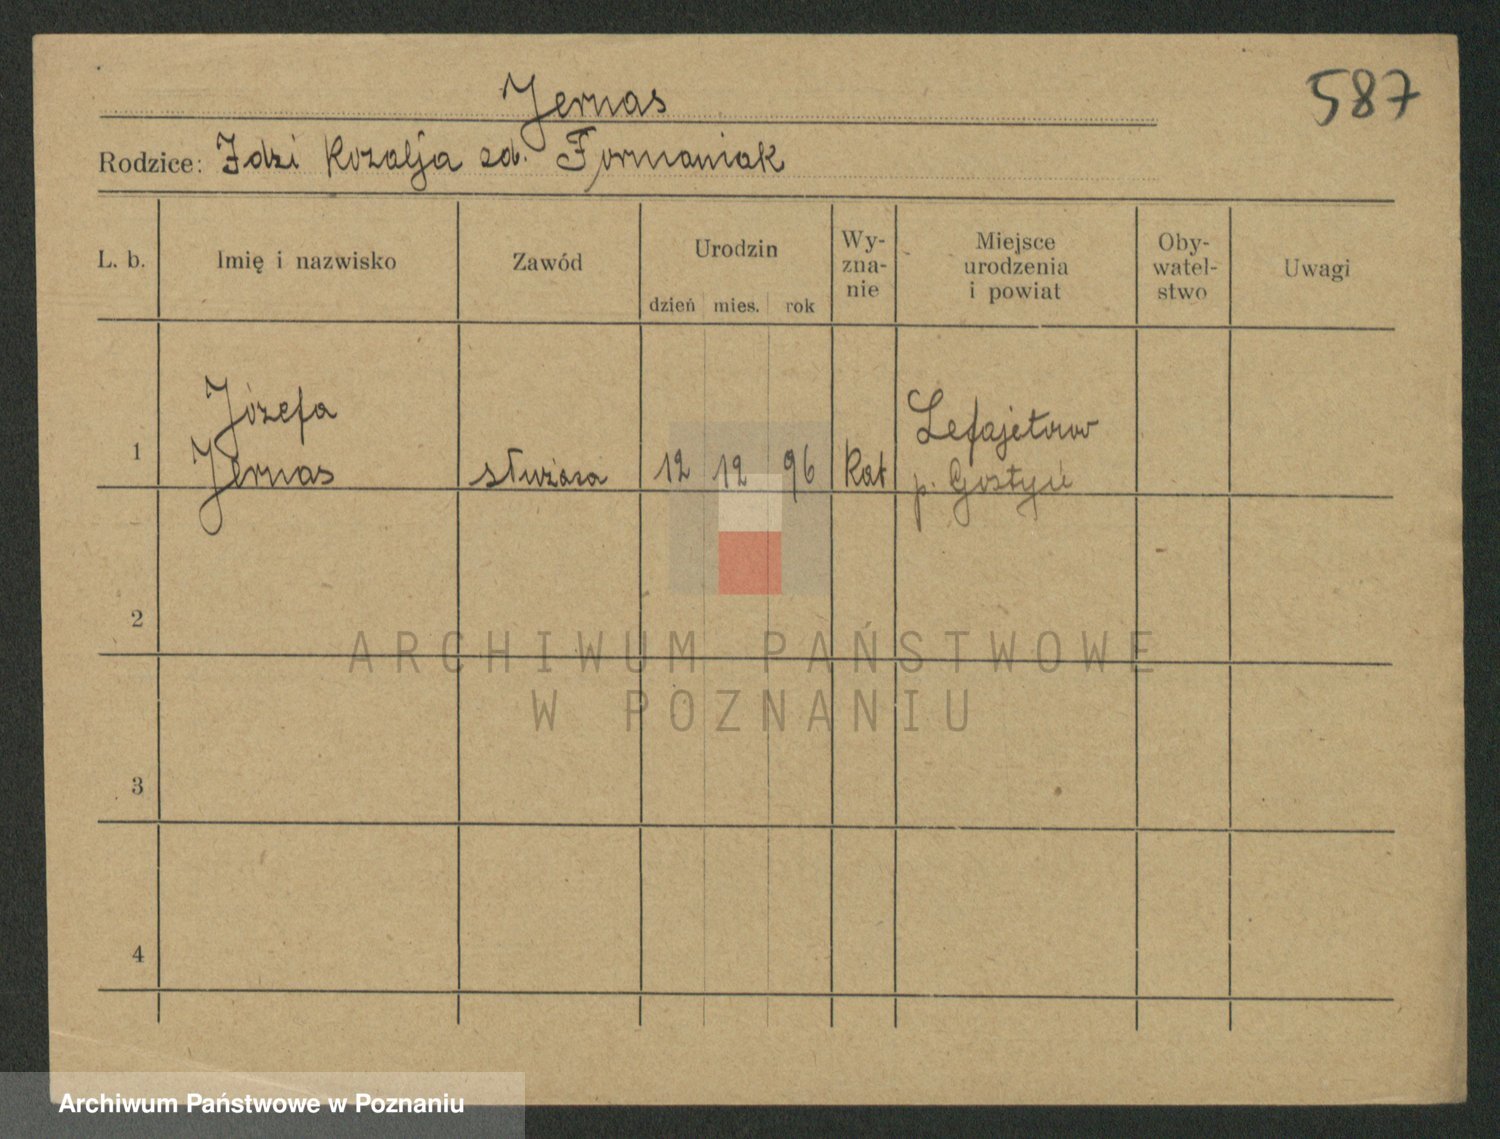 587
Jernas
Rodzice: Idzi Rozalja zd. Formaniak
L. b.
Imię i nazwisko
Zawód
Urodzin
dzień mies. rok
Wy-
zna-
nie
Miejsce
urodzenia
i powiat
Oby-
watel-
stwo
Uwagi
1
Józefa
Jernas
służąca
12 12 96
Kat
Lefajetowo
p. Gostyń
2
3
4
ARCHIWUM PAŃSTWOWE
W POZNANIU
Archiwum Państwowe w Poznaniu